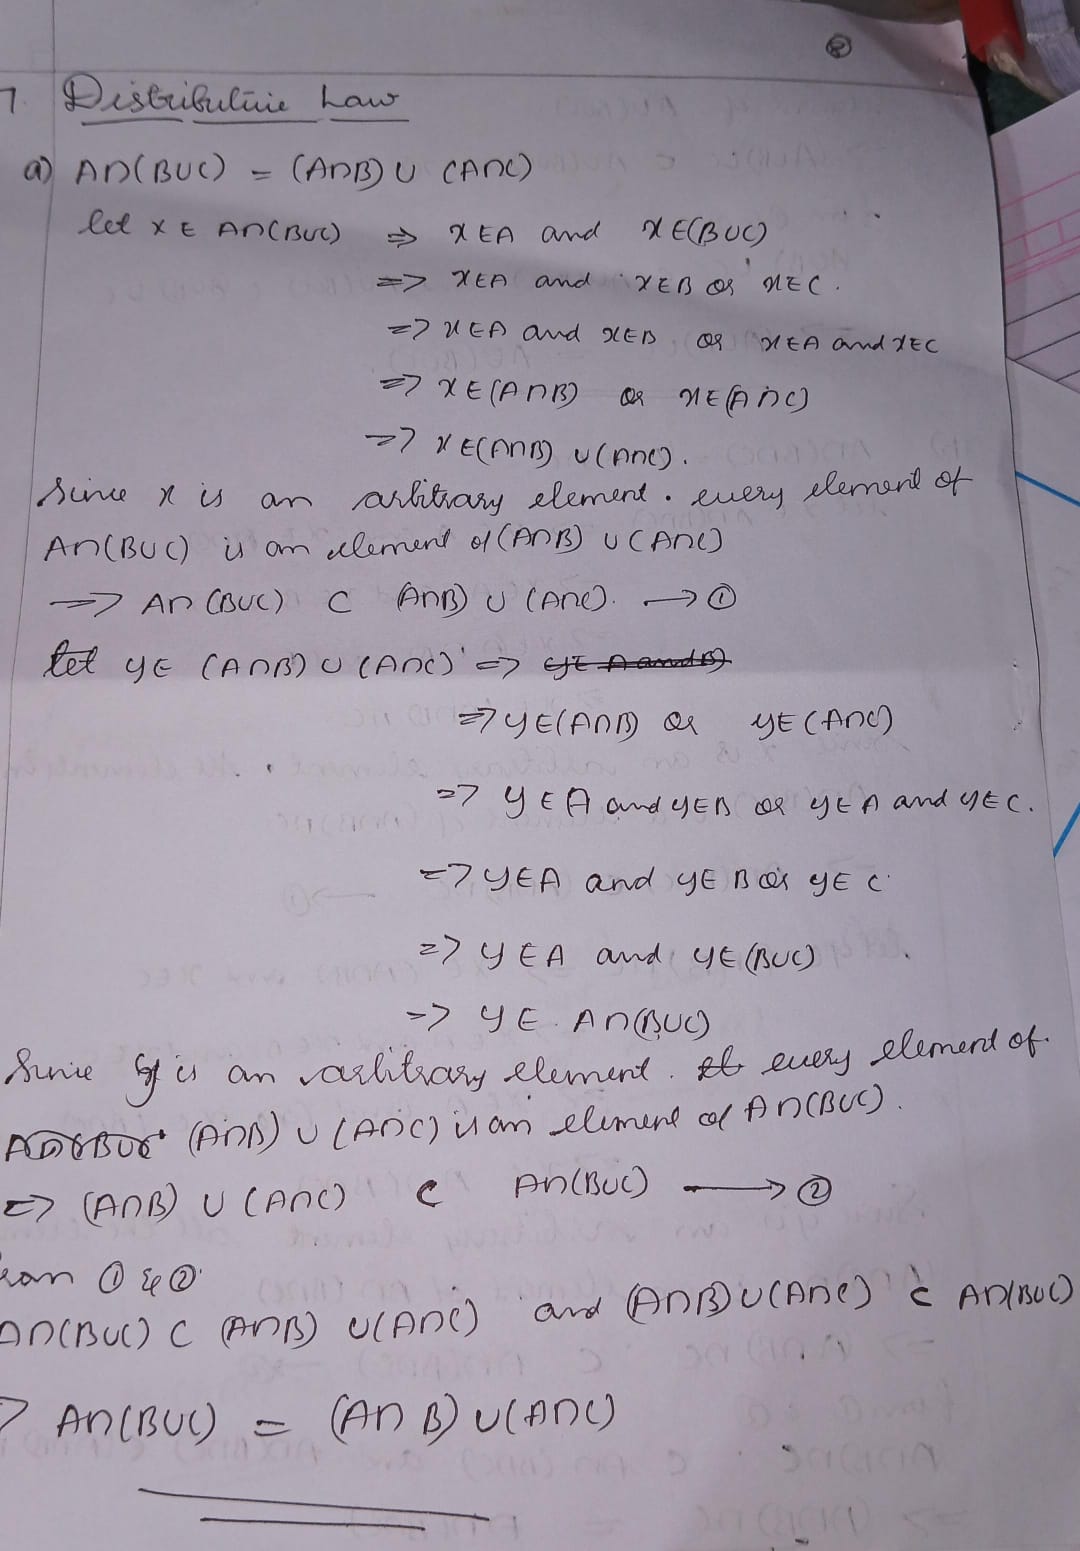 ②
7. Distributive Law
a) A∩(B∪C) = (A∩B) ∪ (A∩C)
let x ∈ A∩(B∪C) => x ∈ A and x ∈ (B∪C)
=> x ∈ A and x ∈ B or x ∈ C.
=> x ∈ A and x ∈ B or x ∈ A and x ∈ C
=> x ∈ (A∩B) or x ∈ (A∩C)
=> x ∈ (A∩B) ∪ (A∩C).
Since x is an arbitrary element. every element of
A∩(B∪C) is an element of (A∩B) ∪ (A∩C)
=> A∩(B∪C) ⊂ (A∩B) ∪ (A∩C). → ①
let y ∈ (A∩B) ∪ (A∩C) => y ∈ A and B)
=> y ∈ (A∩B) or y ∈ (A∩C)
=> y ∈ A and y ∈ B or y ∈ A and y ∈ C.
=> y ∈ A and y ∈ B or y ∈ C.
=> y ∈ A and y ∈ (B∪C)
=> y ∈ A∩(B∪C)
Since y is an arbitrary element. every element of.
A∩(B∪C (A∩B) ∪ (A∩C) is an element of A∩(B∪C).
=> (A∩B) ∪ (A∩C) ⊂ A∩(B∪C) → ②
① & ②.
A∩(B∪C) ⊂ (A∩B) ∪ (A∩C) and (A∩B) ∪ (A∩C) ⊂ A∩(B∪C)
> A∩(B∪C) = (A∩B) ∪ (A∩C)